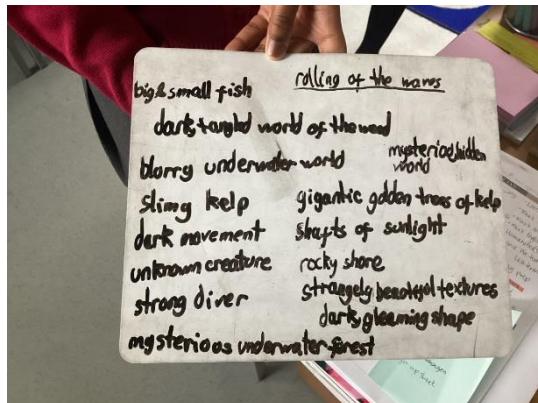 rolling of the waves
big & small fish
dark, tangled world of the weed
blurry underwater world
mysterious, hidden
world
slimy kelp
gigantic golden trees of kelp
dark movement
shafts of sunlight
unknown creature
rocky shore
strong diver
strangely beautiful textures
dark, gleaming shape
mysterious underwater forest